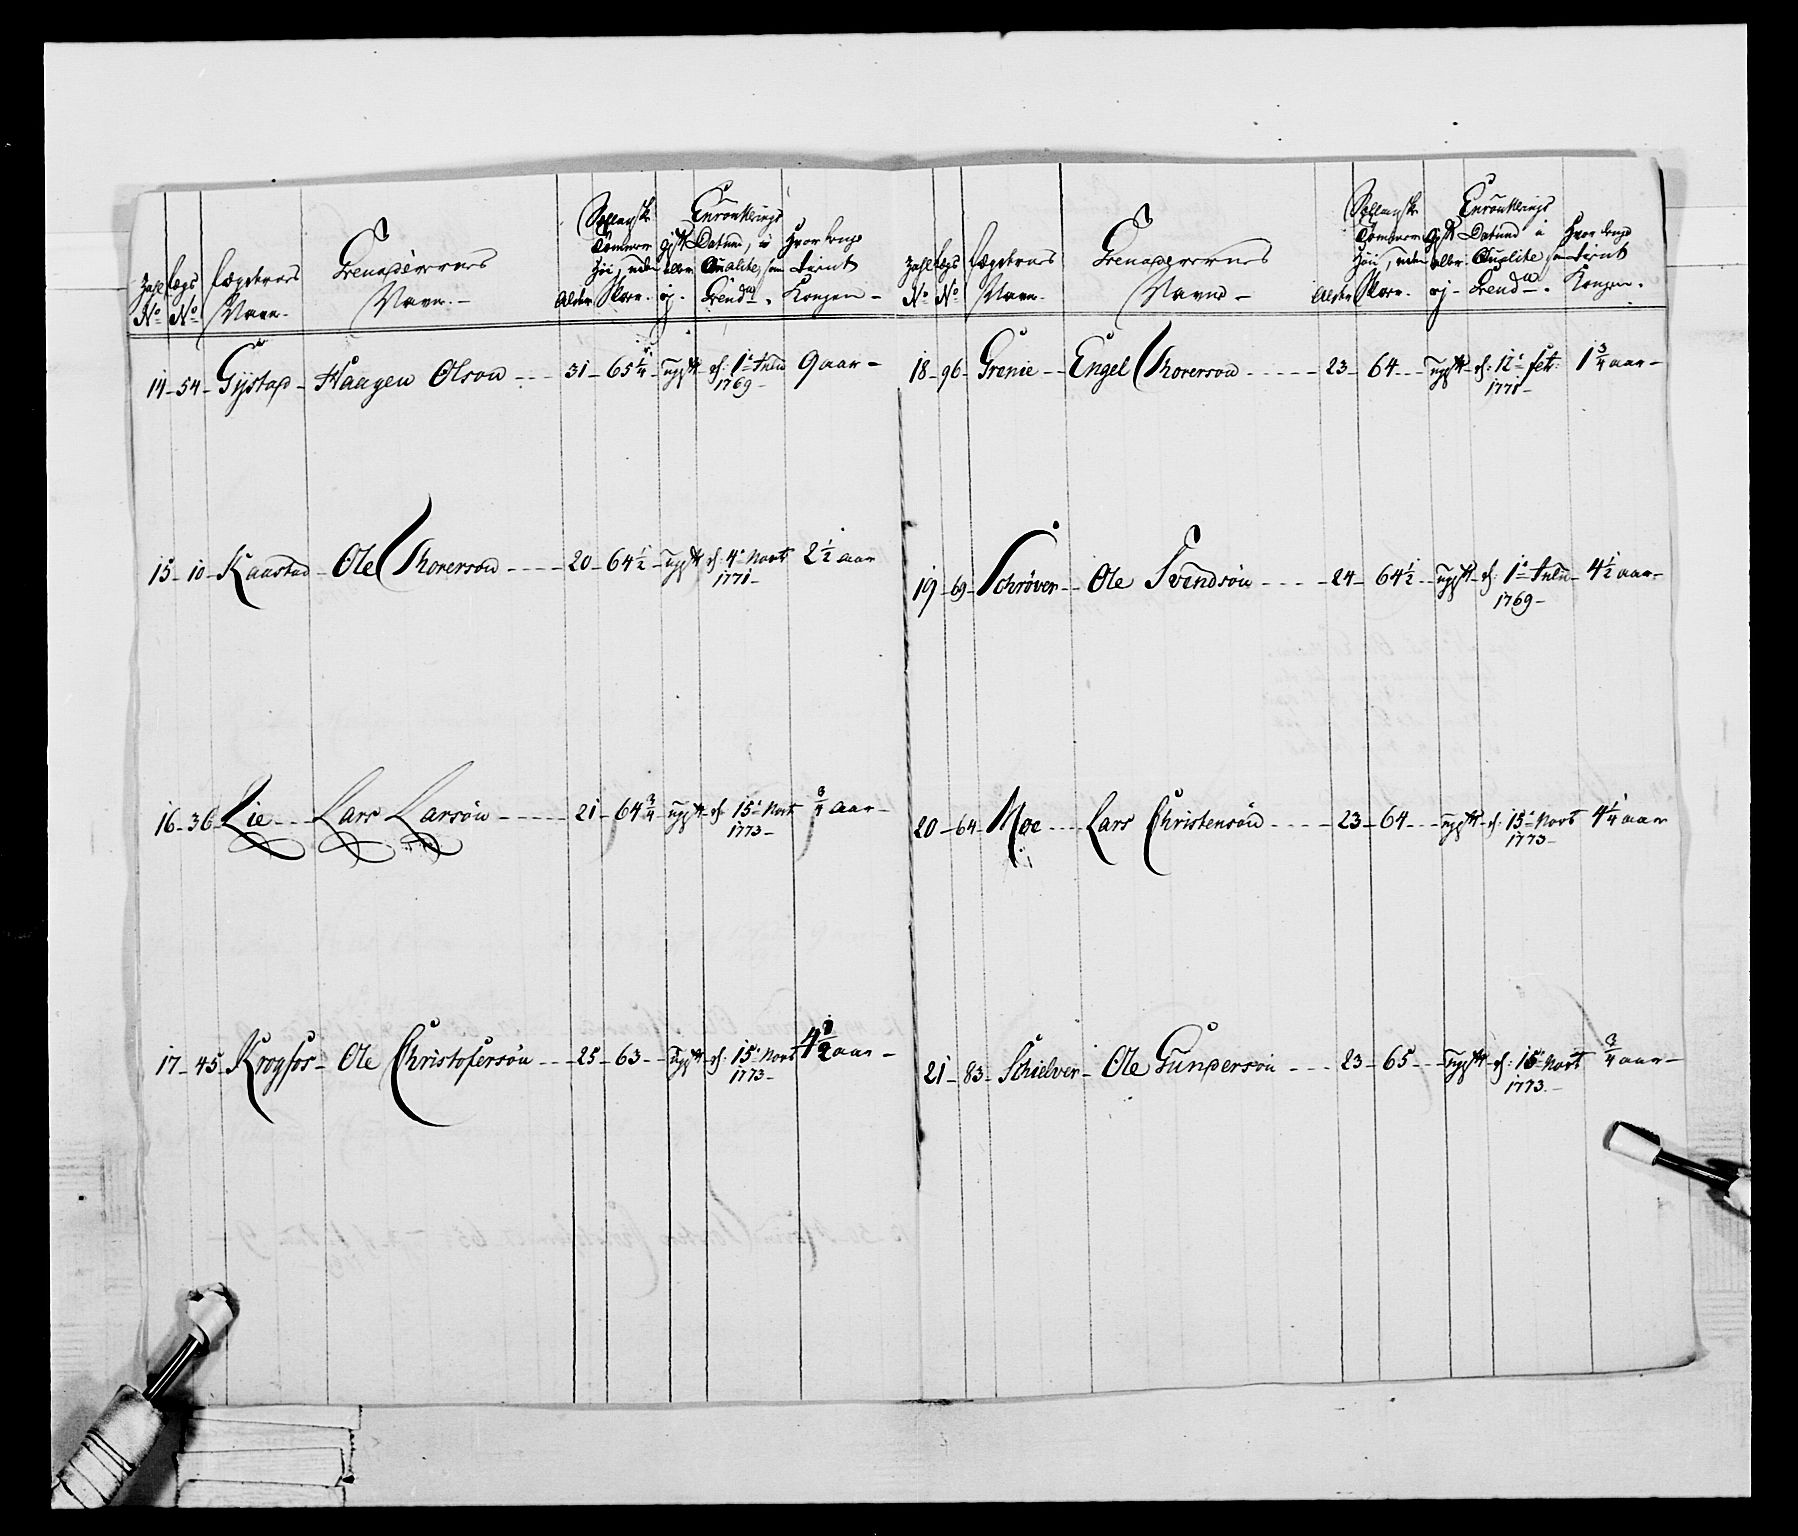 Zahl No
Legs No
Lægternes Navn.
Grenaderernes Navn.
Alder
Sællansk Tommer Høi, uden Skoe.
Gift eller ej.
Enroullerings Datum, i Qualite som Grendr.
Hvor længe tient Kongen
14 - 54 - Gijstad - Haagen Olson - 31 - 65 1/4 - ugift - d: 1e Juln 1769 - 9 aar -
15 - 10 - Kaastad - Ole Thorerson - 20 - 64 1/2 - ugift d: 4e Marts 1771 - 2 1/2 aar
16 - 36 - Lie - Lars Larsön - 21 - 64 3/4 - ugift - d: 15e Marts 1773 - 3/4 aar -
17 - 45 - Krogfos - Ole Christofersön - 25 - 63 - ugift - d: 15e Marts 1773 - 4 1/2 aar -
Zahl No
Legs No
Lægternes Navn.
Grenaderernes Navn
Alder
Sællansk Tommer Høi, uden Skoe.
Gift eller ej
Enroullerings Datum i Qualite som Grendr.
Hvor længe tient Kongen.
18 - 96 - Grenie - Engel Thorerson - 23 - 64 - ugift - d: 12e feb: 1771 - 1 3/4 aar -
19 - 69 - Schröver - Ole Svendsön - 24 - 64 1/2 - ugift - d: 1e Juln 1769 - 4 1/2 aar -
20 - 64 - Moe - Lars Christensön - 23 - 64 - ugift - d: 15e Marts 1773 - 4 1/4 aar
21 - 83 - Schielver - Ole Gundersön - 23 - 65 - ugift - d: 15e Marts 1773 - 3/4 aar -